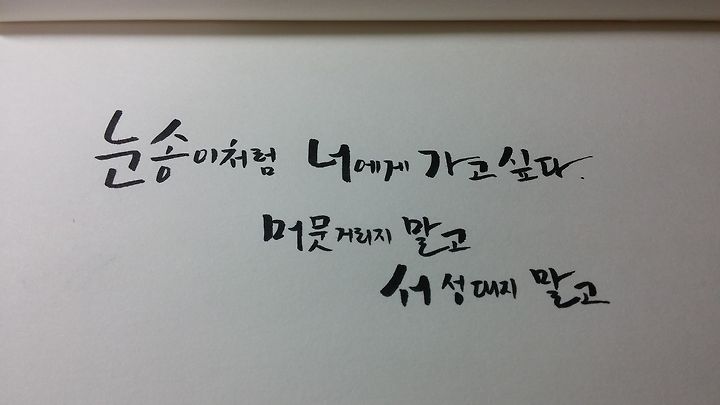 눈송이처럼 너에게 가고싶다.
머뭇거리지 말고
서성대지 말고